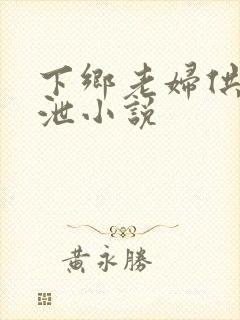 下鄉老婦供
泄小説
黃永勝